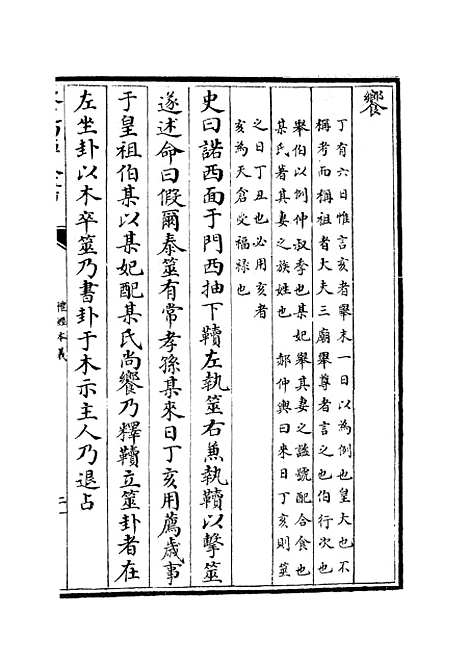 饗
丁有六日惟言亥者舉末一日以為例也皇大也不
稱考而稱祖者大夫三廟舉尊者言之也伯行次也
舉伯以例仲叔季也某妃舉其妻之諡號配合食也
某氏著其妻之族姓也 郝仲輿曰來日丁亥則筮
之日丁丑也必用亥者
亥為天倉受福祿也
史曰諾西面于門西抽下韇左執筮右兼執韇以擊筮
遂述命曰假爾泰筮有常孝孫某來日丁亥用薦歲事
于皇祖伯某以某妃配某氏尚饗乃釋韇立筮卦者在
左坐卦以木卒筮乃書卦于木示主人乃退占
禮經本義